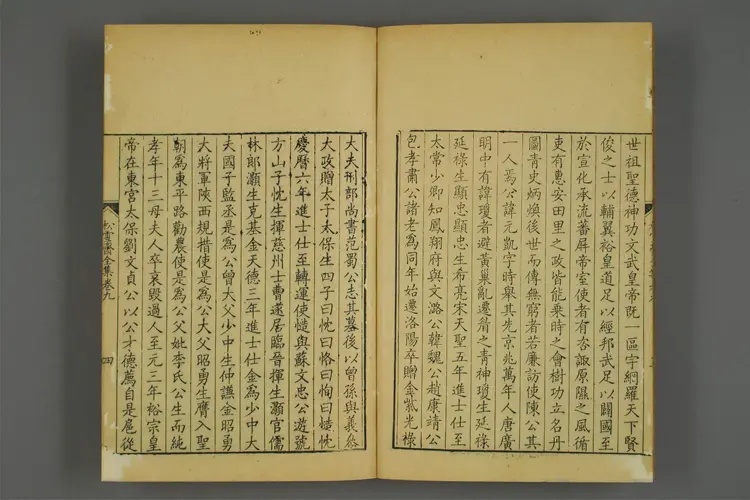 世祖聖德神功文武皇帝既一區宇網羅天下賢
俊之士以輔翼裕皇道足以經邦武足以闢國至
於宣化承流蕃屏帝室使者有咨諏原隰之風循
吏有惠安田里之政皆能乘時之會樹功立名丹
圖青史炳煥後世而傳無窮者若廉訪使陳公其
一人焉公諱元凱字時舉其先京兆萬年人唐廣
明中有諱瓊者避黃巢亂遷眉之青神瓊生延祿
延祿生顯忠顯忠生希亮宋天聖五年進士仕至
太常少卿知鳳翔府與文潞公韓魏公趙康靖公
包孝肅公諸老為同年始遷洛陽卒贈金紫光祿
大夫刑部尚書范蜀公志其墓後以曾孫與義參
大政贈太子太保生四子曰忱曰恪曰恂曰慥忱
慶曆六年進士仕至轉運使慥與蘇文忠公遊號
方山子忱生揮慈州士曹遂居臨晉揮生灝官儒
林郎灝生克基金天德三年進士仕金為少中大
夫國子監丞是為公曾大父少中生仲謙金昭勇
大將軍陝西規措使是為公大父昭勇生膺入聖
朝為東平路勸農使是為公父妣李氏公生而純
孝年十三母夫人卒哀毀過人至元三年裕宗皇
帝在東宮太保劉文貞公以公才德薦自是扈從
松雪齋全集卷九
四